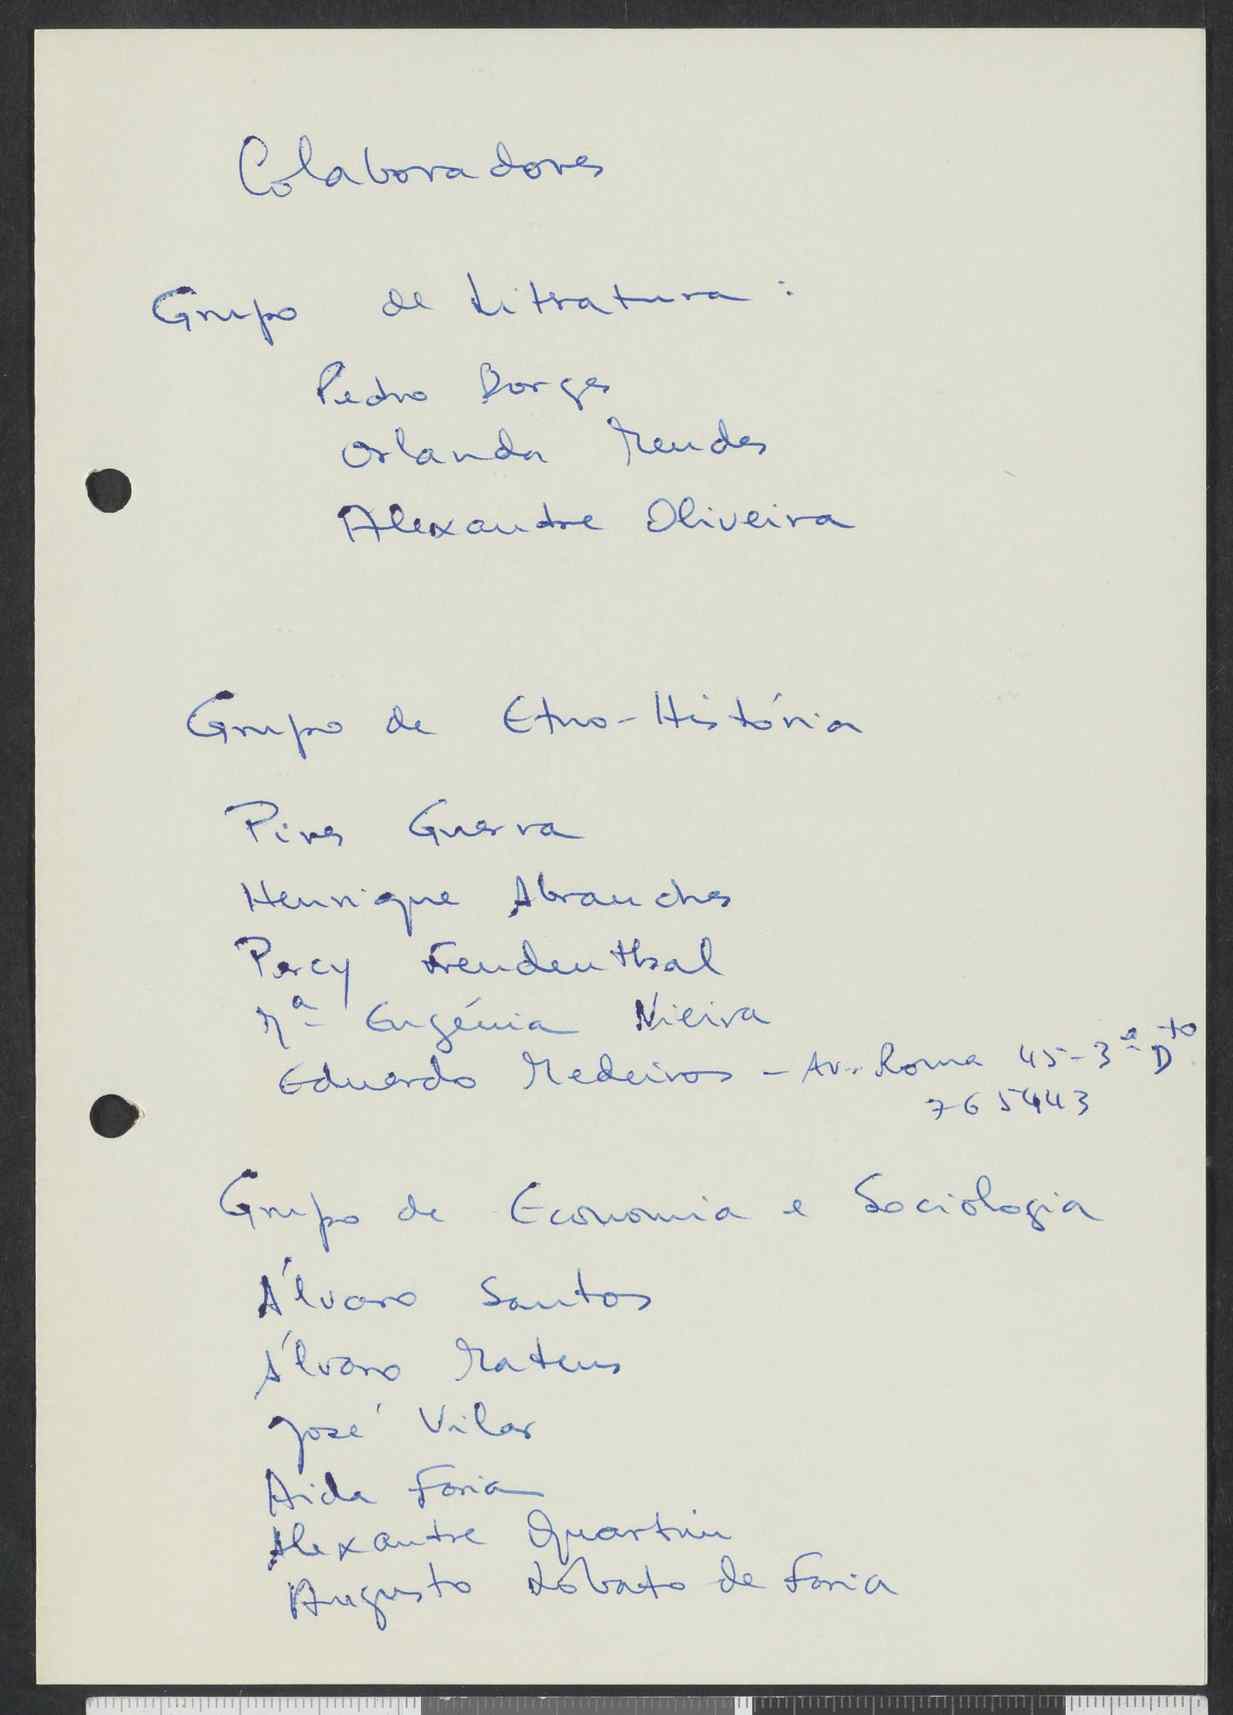 Colaboradores
Grupo de Literatura :
Pedro Borges
Orlanda Mendes
Alexandre Oliveira
Grupo de Etno-História
Pires Guerra
Henrique Abranches
Percy Freudenthal
Mª Eugénia Vieira
Eduardo Medeiros - Av. Roma 45-3º Dto
765443
Grupo de Economia e Sociologia
Álvaro Santos
Álvaro Mateus
José Vilar
Aida Faria
Alexandre Quartin
Augusto Lobato de Faria